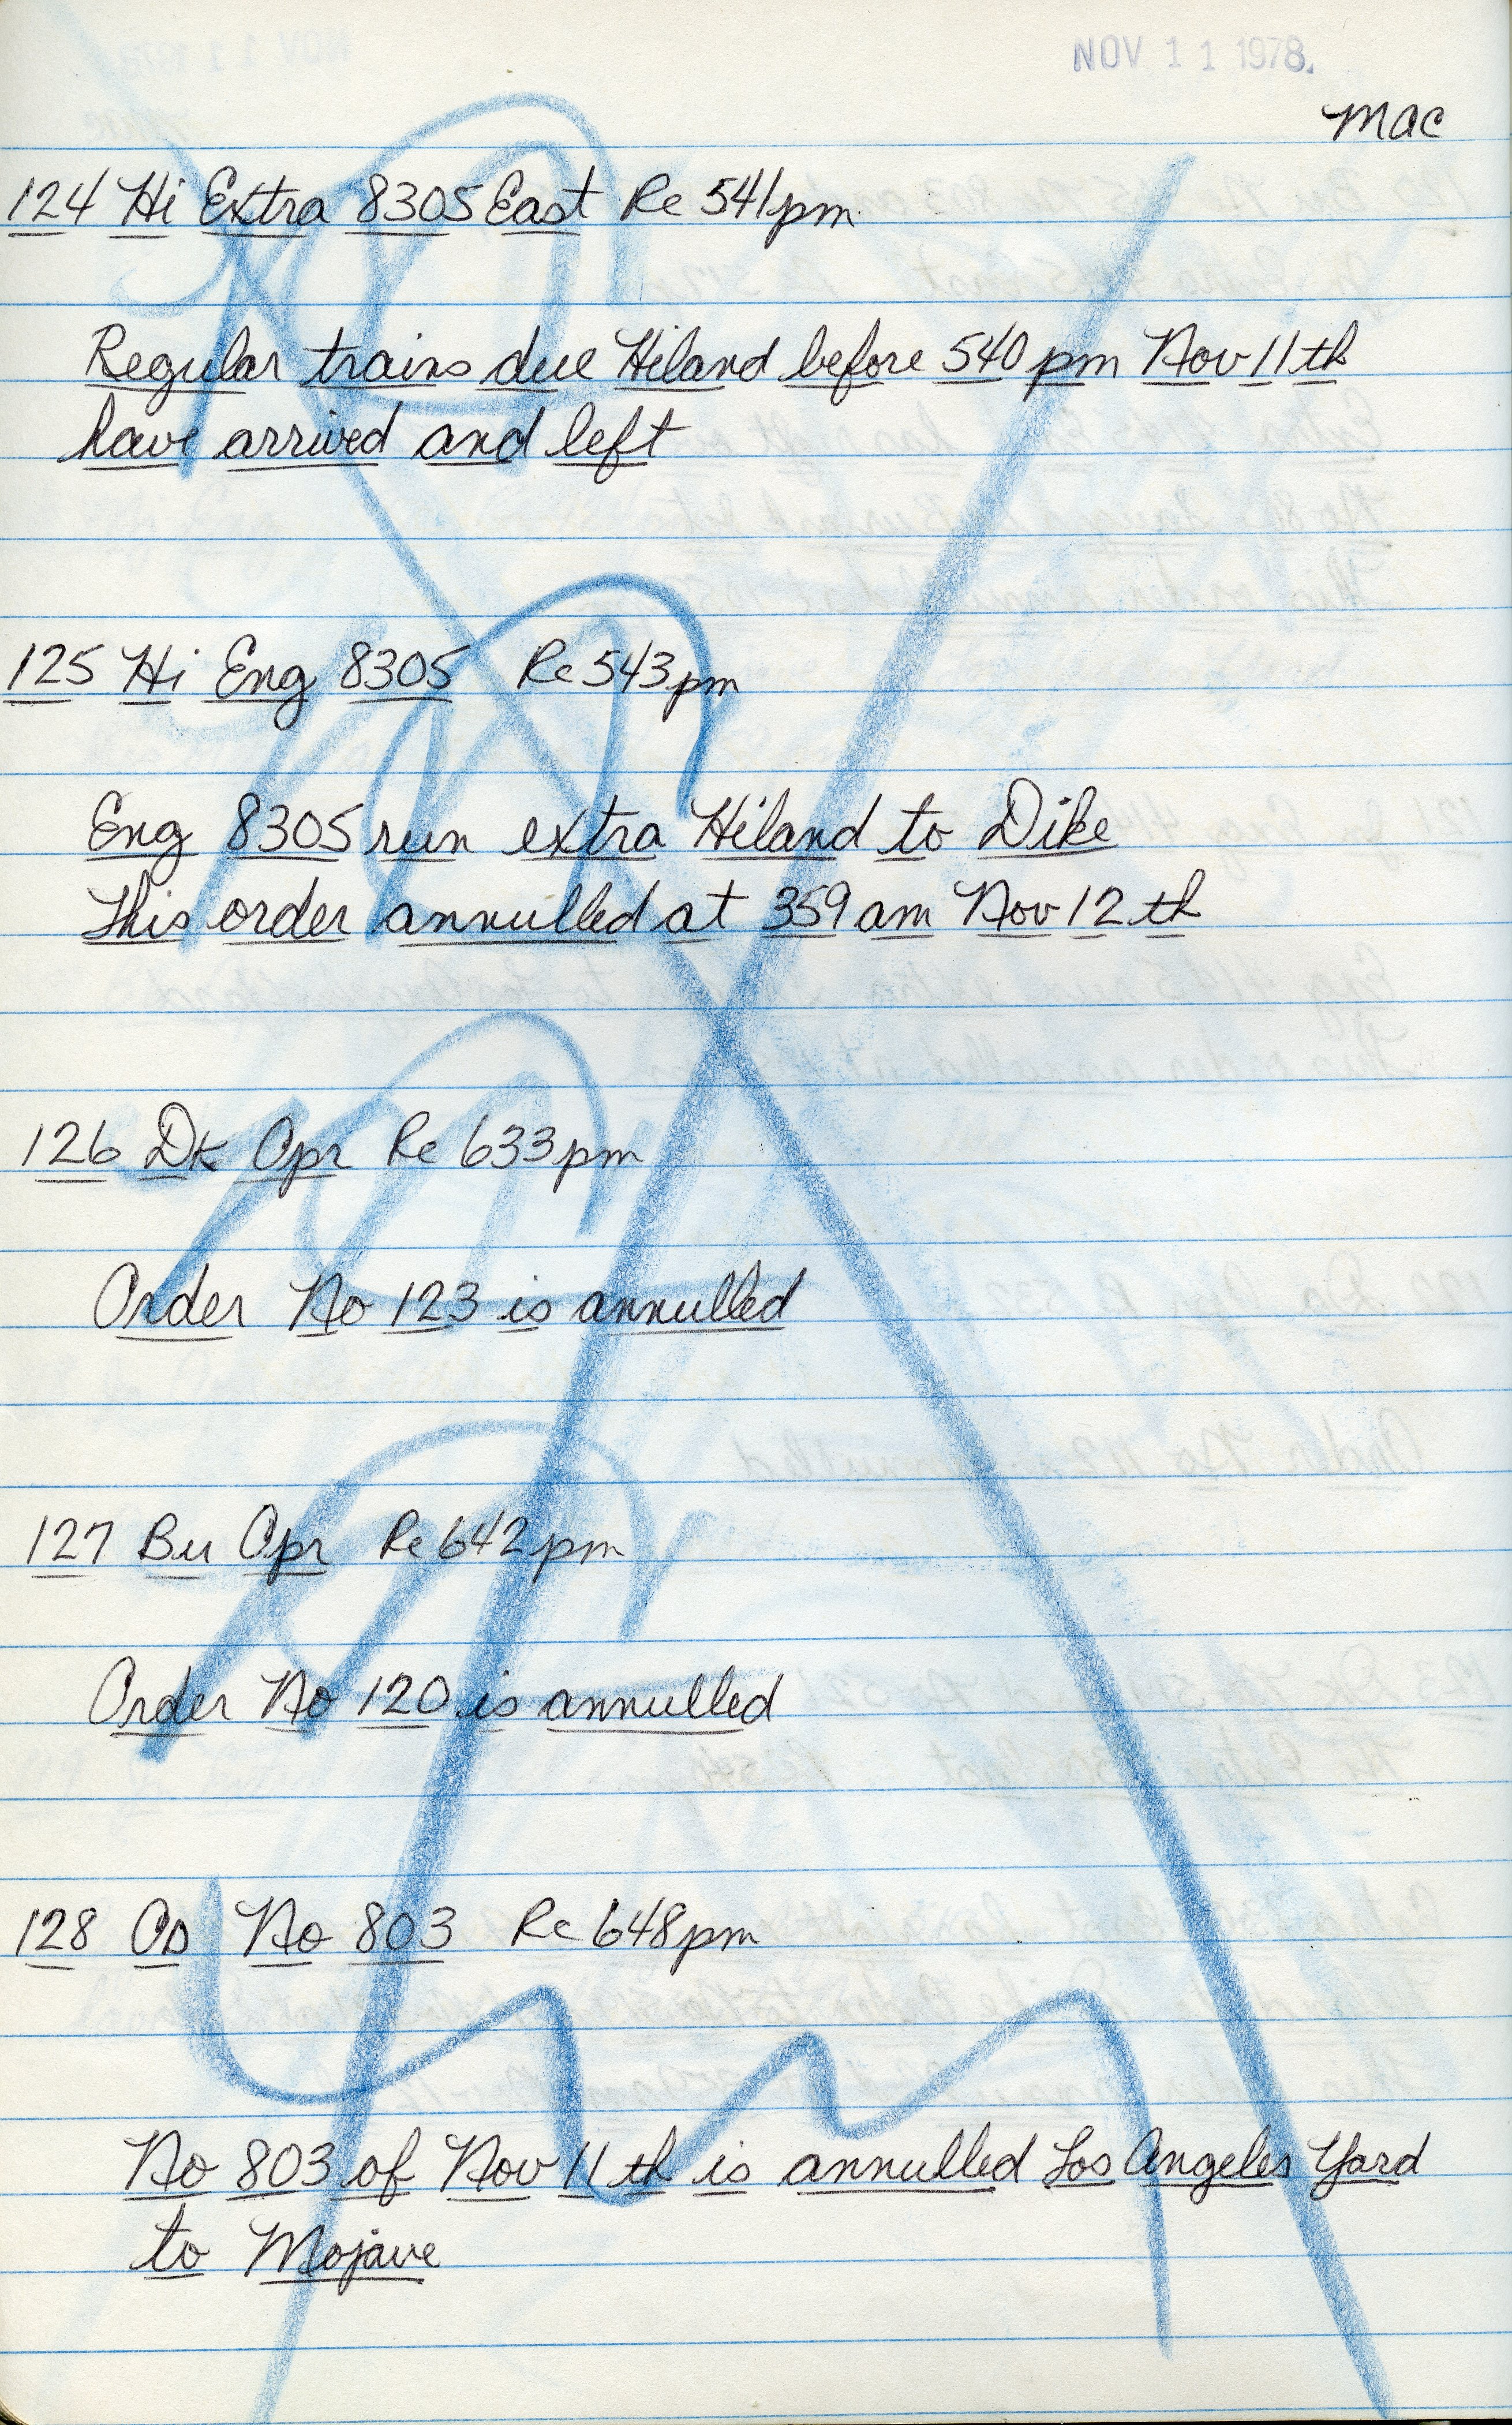 NOV 11 1978.
mac
124 Hi Extra 8305 East Re 541pm
Regular trains due Hiland before 540 pm Nov 11 th
have arrived and left
125 Hi Eng 8305 Re 543pm
Eng 8305 run extra Hiland to Dike
This order annulled at 359 am Nov 12 th
126 Dk Opr Re 633pm
Order No 123 is annulled
127 Bu Opr Re 642pm
Order No 120 is annulled
128 Os No 803 Re 648pm
No 803 of Nov 11 th is annulled Los Angeles Yard
to Mojave